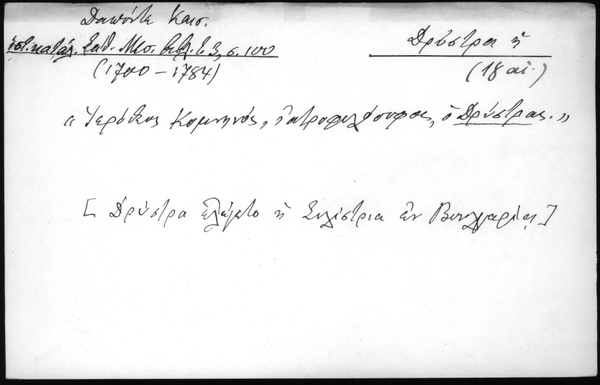 Δαπόντε Καισ.
ἱστ. κατάλ. Σαθ. Μεσ. βιβλ. τ. 3, σ. 100
(1700 – 1784)
Δρύστρα ἡ
(18 αἰ.)
« Ἱερόθεος Κομνηνός, ἰατροφιλόσοφος, ὁ Δρύστρας. »
[ Δρύστρα ἐλέγετο ἡ Σιλίστρια ἐν Βουλγαρίᾳ ]